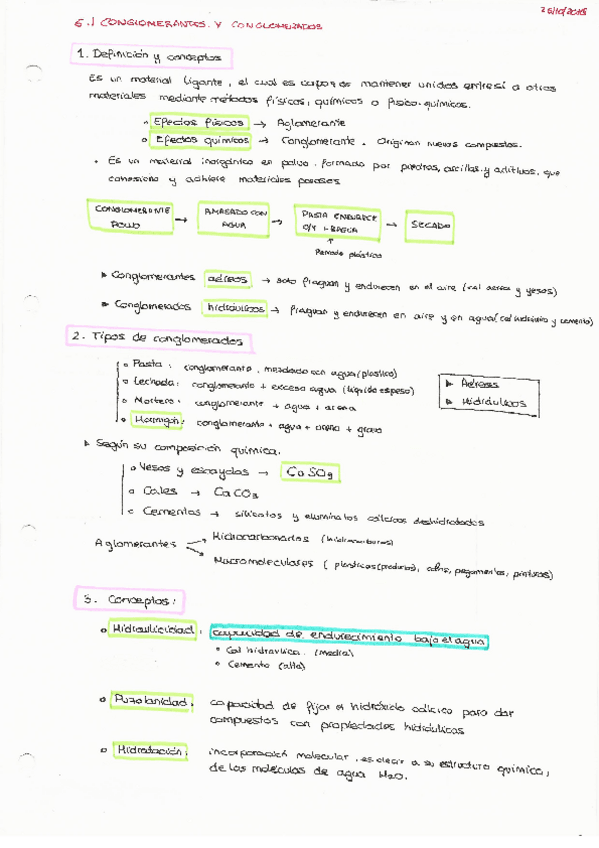 25/10/2018
5.1 CONGLOMERANTES Y CONGLOMERADOS
1. Definición y conceptos
Es un material ligante, el cual es capaz de mantener unidos entre sí a otros
materiales mediante métodos físicos, químicos o físico-químicos.
Efectos físicos → Aglomerante
Efectos químicos → Conglomerante. Originan nuevos compuestos.
• Es un material inorgánico en polvo, formado por piedras, arcillas y aditivos, que
cohesiona y adhiere materiales porosos
CONGLOMERANTE POLVO → AMASADO CON AGUA → PASTA ENDURECE → SECADO
Periodo plástico
Conglomerantes aéreos → solo fraguan y endurecen en el aire (cal aérea y yesos)
Conglomerados hidráulicos → fraguan y endurecen en aire y en agua (cal hidráulica y cemento)
2. Tipos de conglomerados
Pasta: conglomerante, mezclado con agua (plástico)
Lechada: conglomerante + exceso agua (líquido espeso)
Mortero: conglomerante + agua + arena
Hormigón: conglomerante + agua + arena + grava
Aéreos
Hidráulicos
Según su composición química.
Yesos y escayolas → CaSO4
Cales → CaCO3
Cementos → silicatos y aluminatos cálcicos deshidratados
Aglomerantes
Hidrocarbonados (hidrocarburos)
Macromoleculares (plásticos, colas, pegamentos, pinturas)
3. Conceptos:
Hidraulicidad: capacidad de endurecimiento bajo el agua
• Cal hidráulica (media)
• Cemento (alta)
Puzolanidad: capacidad de fijar el hidróxido cálcico para dar
compuestos con propiedades hidráulicas
Hidratación: incorporación molecular, es decir a su estructura química,
de las moléculas de agua H2O.